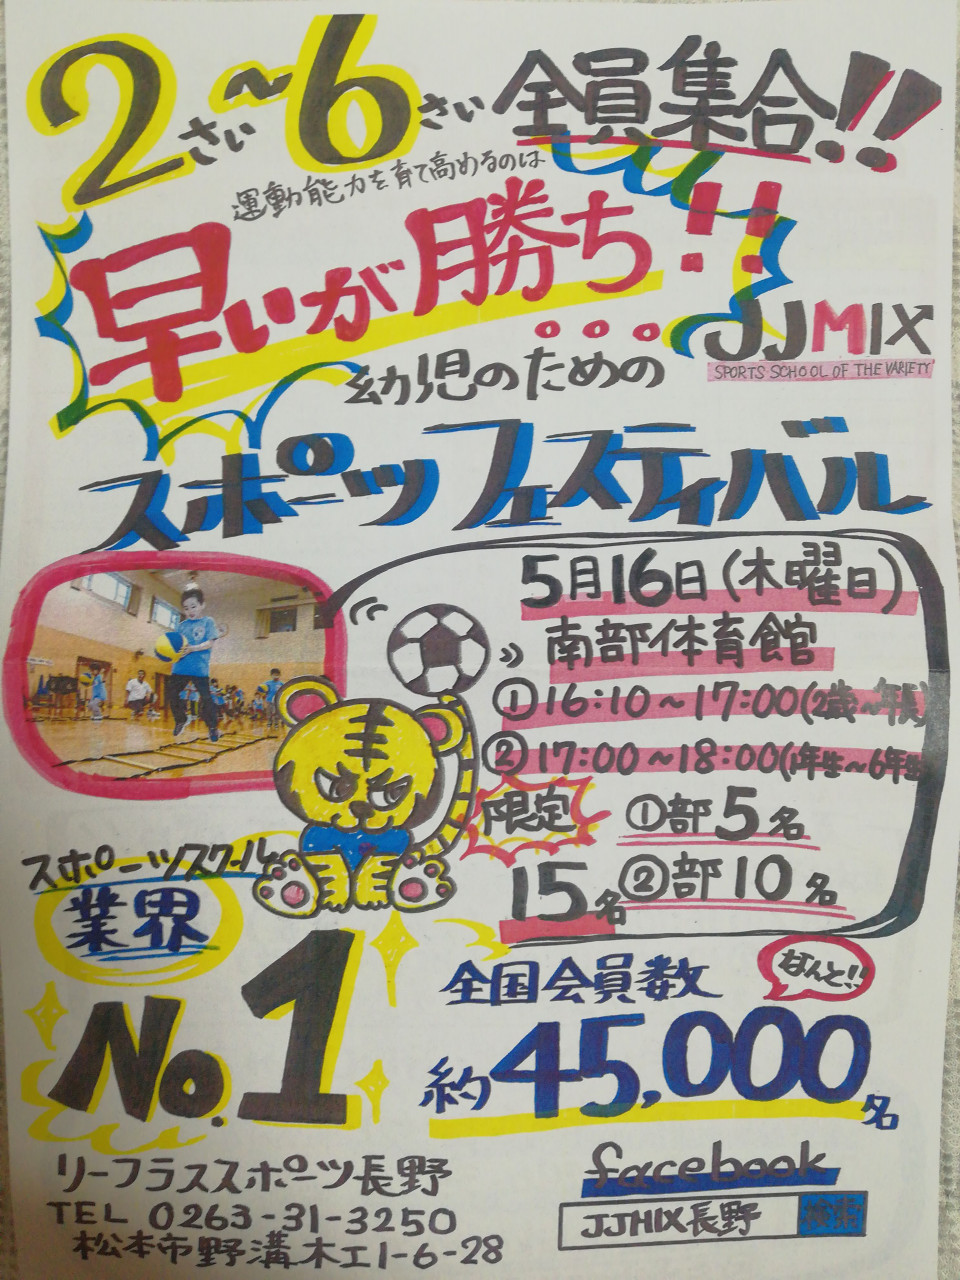 2さい〜6さい 全員集合!!
運動能力を育て高めるのは
早いが勝ち!!
JJMIX
SPORTS SCHOOL OF THE VARIETY
幼児のための
スポーツフェスティバル
5月16日(木曜日)
南部体育館
①16:10〜17:00(2歳〜年長)
②17:00〜18:00(1年生〜6年生)
限定
15名
①部5名
②部10名
スポーツスクール
業界
No.1
なんと!!
全国会員数
約45,000名
リーフラススポーツ長野
TEL 0263-31-3250
松本市野溝木工1-6-28
facebook
JJMIX長野 検索